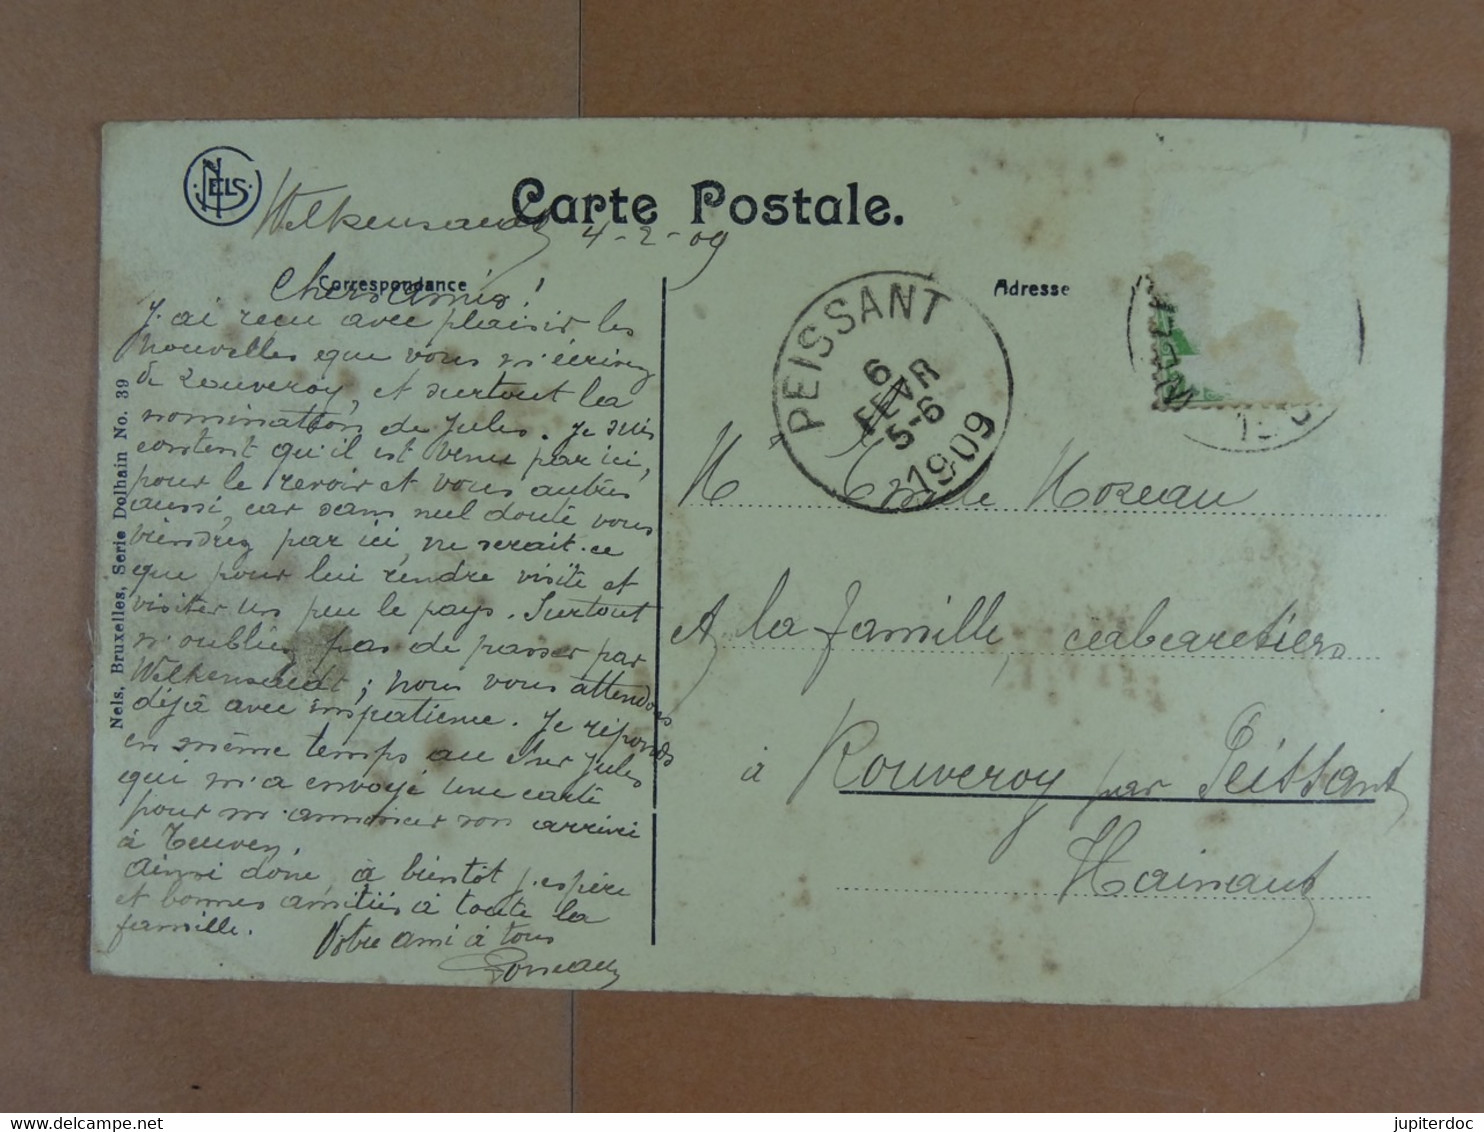 NELS
Carte Postale.
Welkensaedt 4-2-09
Correspondance
Adresse
Chers amis!
J'ai reçu avec plaisir les
nouvelles que vous m'écrivez
de Rouveroy, et surtout la
nomination de Jules. Je suis
content qu'il est venu par ici,
pour le revoir et vous autres
aussi, car sans nul doute vous
viendrez par ici, ne serait-ce
que pour lui rendre visite et
visiter un peu le pays. Surtout
n'oubliez pas de passer par
Welkensaedt; nous vous attendons
déjà avec impatience. Je réponds
en même temps au cher Jules
qui m'a envoyé une carte
pour m'annoncer son arrivée
à Teuven.
Ainsi donc, à bientôt j'espère
et bonnes amitiés à toute la
famille.
Votre ami à tous
Nels, Bruxelles, Serie Dolhain No. 39
PEISSANT
6
FEVR
5-6
1909
M Emile Moreau
et la famille, cabaretiers
à Rouveroy par Peissant
Hainaut
jupiterdoc